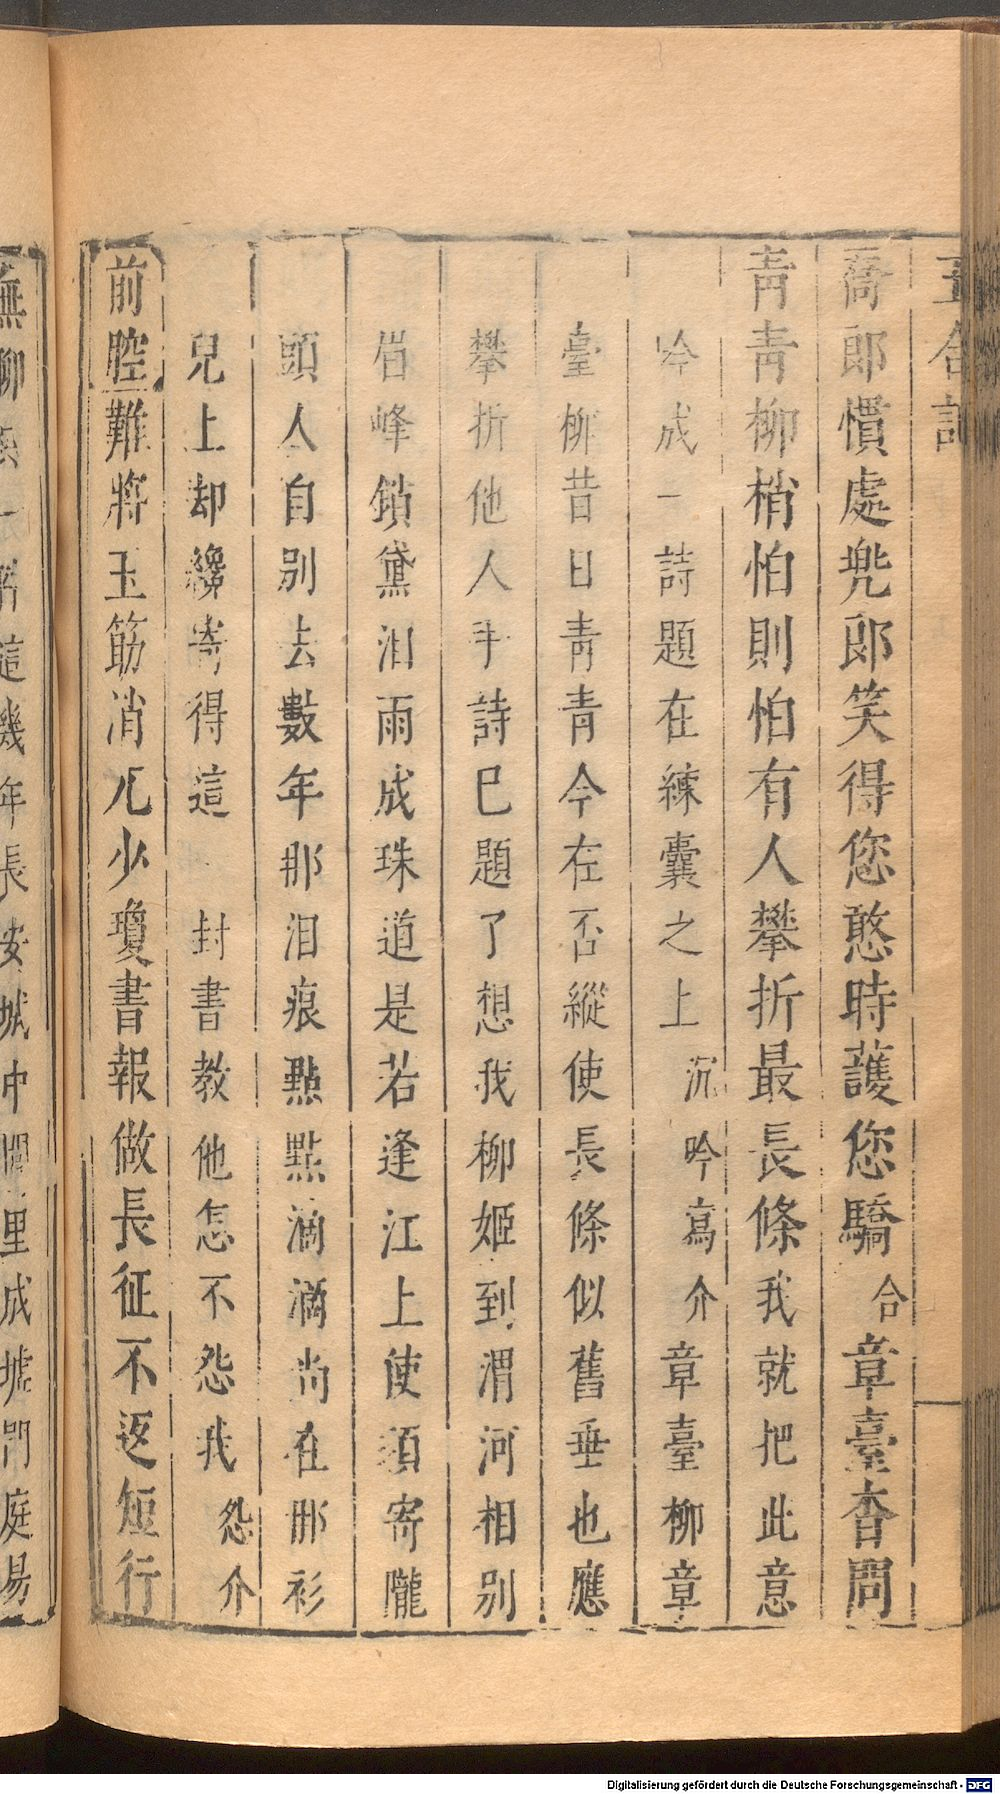 玉合記
喬郎慣處兠郎笑得您憨時護您驕 合 章臺杳問
青青柳梢怕則怕有人攀折最長條 我就把此意
吟成一詩題在練囊之上 沉吟寫介 章臺柳章
臺柳昔日青青今在否縱使長條似舊垂也應
攀折他人手詩已題了想我柳姬到渭河相別
眉峰鎖黛泪雨成珠道是若逢江上使須寄隴
頭人自别去數年那泪痕點點滴滴尚在那衫
兒上却纔寄得這 封書教他怎不怨我 怨介
前腔 難將玉筯消兀少瓊書報做長征不返短行
蕪柳 這幾年長安城中閭里成墟門庭易
Digitalisierung gefördert durch die Deutsche Forschungsgemeinschaft - DFG